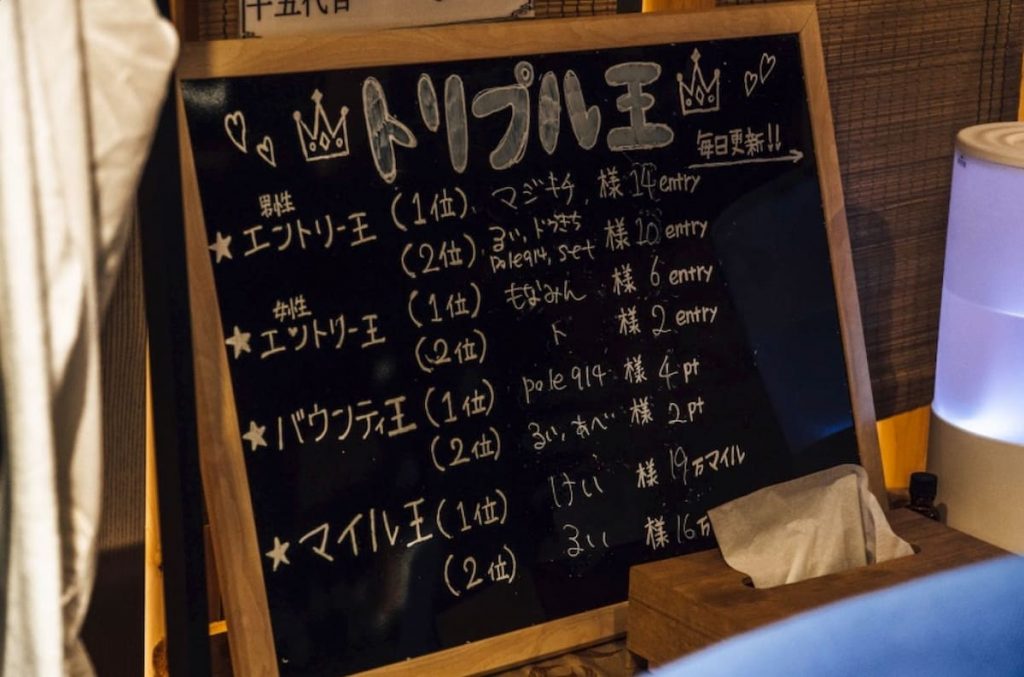 十五代目
トリプル王
毎日更新!!
男性
★エントリー王 (1位) マジキチ. 様 14 entry
(2位) るい, ドラきち 様 10 entry
pole914, set
女性
★エントリー王 (1位) もなみん 様 6 entry
(2位) K 様 2 entry
★バウンティ王 (1位) pole914 様 4 pt
(2位) るい, あべ 様 2 pt
★マイル王 (1位) けい 様 19万マイル
(2位) るい 様 16万